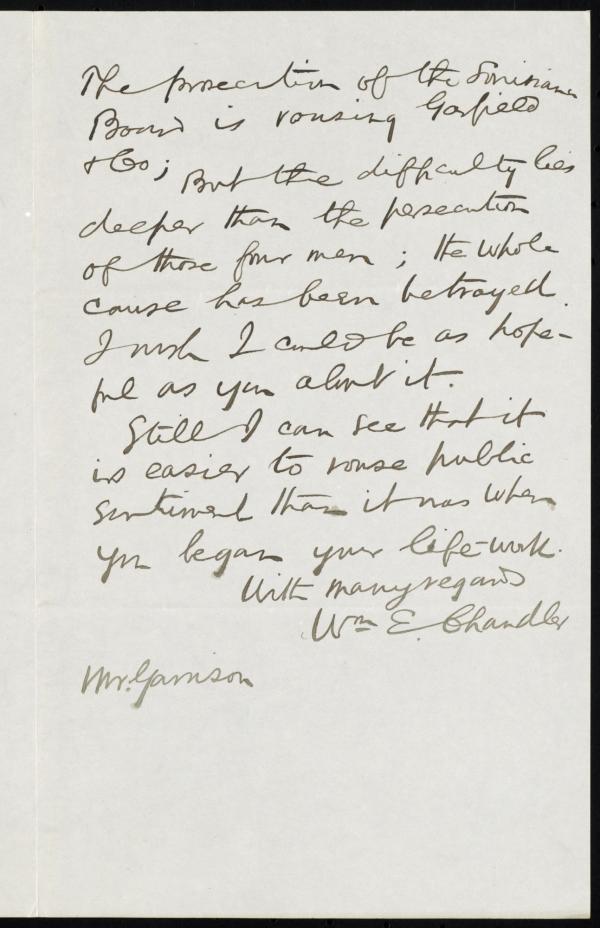 The prosecution of the Louisiana
Board is rousing Garfield
& Co; But the difficulty lies
deeper than the persecution
of those four men; the whole
cause has been betrayed.
I wish I could be as hope-
ful as you about it.
Still I can see that it
is easier to rouse public
sentiment than it was when
you began your life-work.
With many regards
Wm E. Chandler
Mr. Garrison